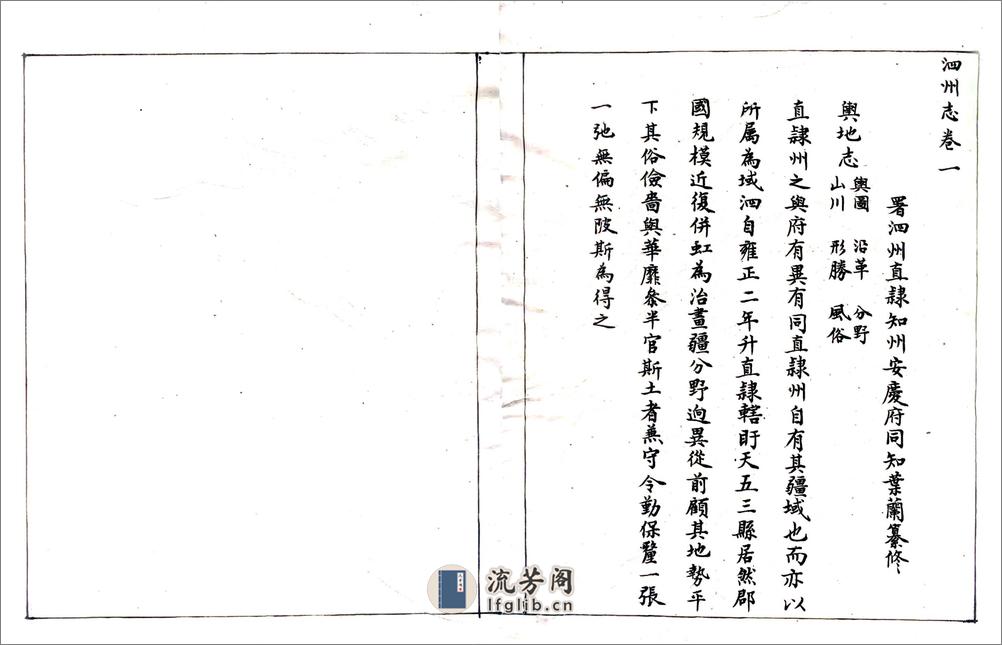 泗州志卷一
署泗州直隷知州安慶府同知葉蘭纂修
輿地志 輿圖 沿革 分野
山川 形勝 風俗
直隷州之與府有異有同直隷州自有其疆域也而亦以
所属為域泗自雍正二年升直隷轄盱天五三縣居然郡
國規模近復併虹為治畫疆分野逈異從前顧其地勢平
下其俗儉嗇與華靡叅半官斯土者蕪守令勤保釐一張
一弛無偏無陂斯為得之
流芳阁
lfglib.cn